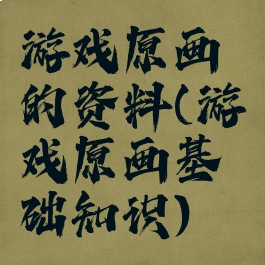 游戏原画
的资料(游
戏原画基
础知识)